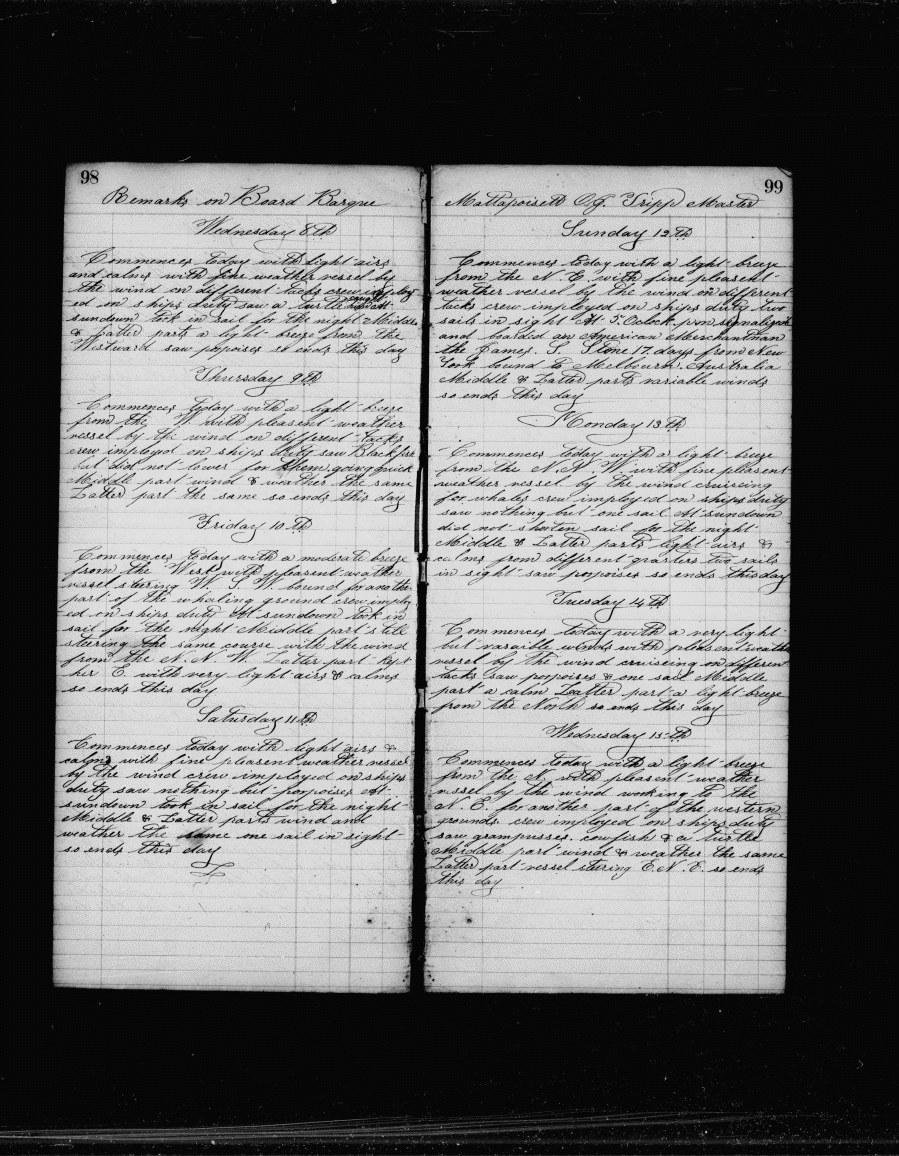 98
Remarks on Board Barque
Wednesday 8th
Commences today with light airs
and calms with fine weather vessel by
the wind on different tacks crew imploy
ed on ships duty saw a turtle At
sundown took in sail for the night Middle
& Latter parts a light breeze from the
Westward saw popoises so ends this day
Thursday 9th
Commences today with a light breeze
from the W. with pleasent weather
vessel by the wind on different tacks
crew imployd on ships duty saw Blackfish
but did not lower for them going quick
Middle part wind & weather the same
Latter part the same so ends this day
Friday 10th
Commences today with a moderate breeze
from the West with pleasent weather
vessel steering W. S. W. bound for another
part of the whaling ground crew imploy
ed on ships duty At sundown took in
sail for the night Middle part still
steering the same course with the wind
from the N. N. W. Latter part kept
her E. with very light airs & calms
so ends this day
Saturday 11th
Commences today with light airs &
calms with fine pleasent weather vessel
by the wind crew imployed on ships
duty saw nothing but porpoises At
sundown took in sail for the night
Middle & Latter parts wind and
weather the same one sail in sight
so ends this day
99
Mattapoisett O.G. Tripp Master
Sunday 12th
Commences today with a light breeze
from the N E. with fine pleasent
weather vessel by the wind on different
tacks crew imployed on ships duty two
sails in sight At 5. Oclock p.m signalized
and boarded an American Merchantman
the James. S. Stone 17. days from New
York bound to Melbourn. Australia
Middle & Latter parts variable winds
so ends this day
Monday 13th
Commences today with a light breeze
from the N. N. W. with fine pleasent
weather vessel by the wind cruiseing
for whales crew imployed on ships duty
saw nothing but one sail At sundown
did not shorten sail for the night
Middle & Latter parts light airs &
calms from different quarters two sails
in sight saw popoises so ends this day
Tuesday 14th
Commences today with a very light
but varaible winds with pleasent weather
vessel by the wind cruiseing on different
tacks saw popoises & one sail Middle
part a calm Latter part a light breeze
from the North so ends this day
Wednesday 15th
Commences today with a light breeze
from the N. with pleasent weather
vessel by the wind working to the
N. E. for another part of the western
grounds crew imployed on ships duty
saw grampusses cowfish & a turtle
Middle part wind & weather the same
Latter part vessel steering E. N. E. so ends
this day